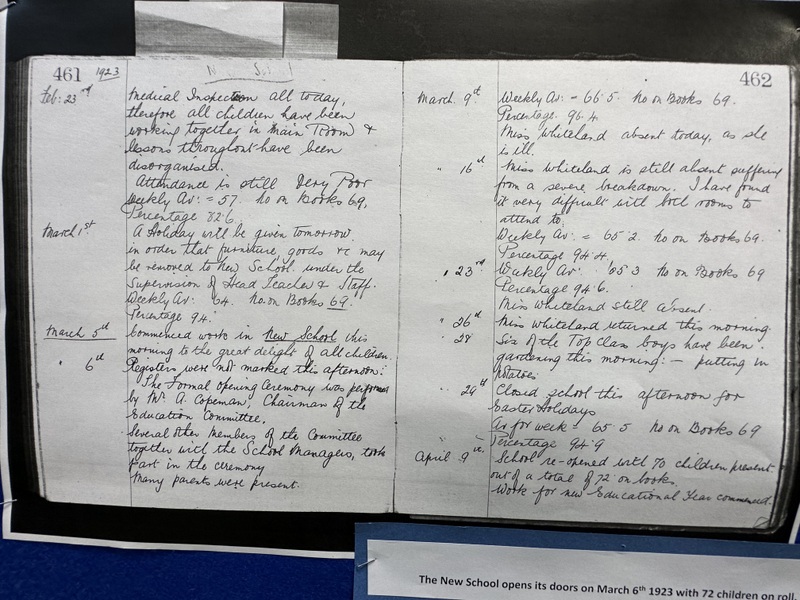 461 1923
Feb: 23rd Medical Inspection all today,
therefore all children have been
working together in Main Room &
lessons throughout have been
disorganised.
Attendance is still Very Poor
Weekly Av: = 57. No on Books 69,
Percentage 82.6.
March 1st A Holiday will be given tomorrow
in order that furniture, goods &c may
be removed to New School under the
Supervision of Head Teacher & Staff.
Weekly Av: 64. No. on Books 69.
Percentage 94.
March 5th Commenced work in New School this
morning to the great delight of all children.
" 6th Registers were not marked this afternoon:
The Formal opening Ceremony was performed
by Mr. A. Copeman, Chairman of the
Education Committee.
Several other Members of the Committee
together with the School Managers, took
Part in the ceremony
Many parents were present.
462
March 9th Weekly Av: = 66.5. No on Books 69.
Percentage. 96.4.
Miss Whiteland absent today, as she
is ill.
" 16th Miss Whiteland is still absent suffering
from a severe breakdown. I have found
it very difficult with both rooms to
attend to.
Weekly Av: = 65.2. No on Books 69.
Percentage 94.4.
" 23rd Weekly Av: 65.3 No on Books 69
Percentage 94.6.
Miss Whiteland still absent.
" 26th Miss Whiteland returned this morning.
" 28 Six of the Top Class boys have been
gardening this morning: — putting in
Potatoes
" 29th Closed school this afternoon for
Easter Holidays
Av for week = 65.5 No on Books 69
Percentage 94.9
April 9th School re-opened with 70 children present
out of a total of 72 on books.
Work for new Educational Year commenced.
The New School opens its doors on March 6th 1923 with 72 children on roll.